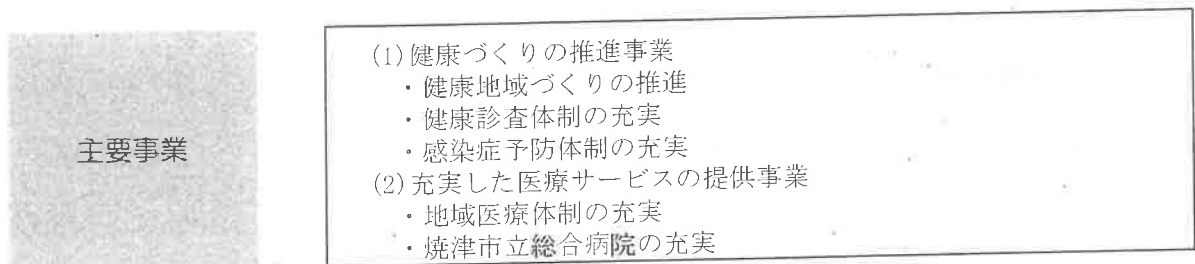 主要事業
(1)健康づくりの推進事業
・健康地域づくりの推進
・健康診査体制の充実
・感染症予防体制の充実
(2)充実した医療サービスの提供事業
・地域医療体制の充実
・焼津市立総合病院の充実